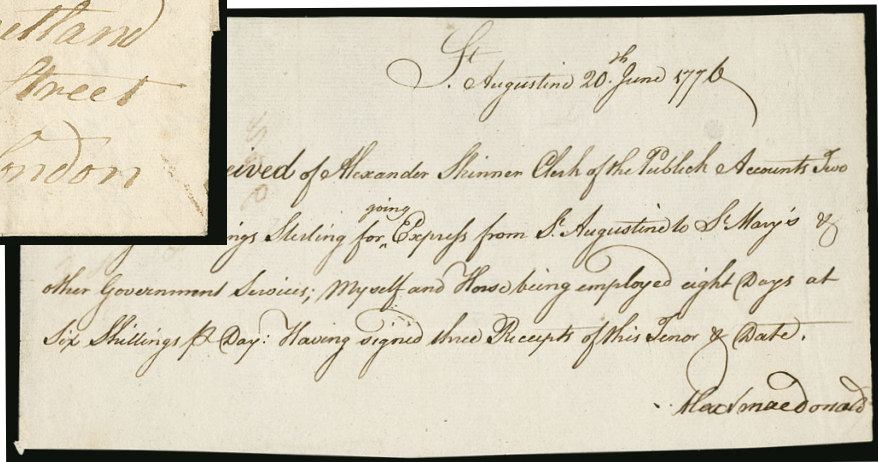 etland
Street
ondon
St. Augustine 20.th June 1776
eived of Alexander Skinner Clerk of the Publick Accounts Two
going
ngs Sterling for, Express from St. Augustine to St. Mary's &
other Government Services; Myself and Horse being employed eight Days at
Six Shillings P Day: Having signed three Receipts of this Tenor & Date.
Alexr macdonald